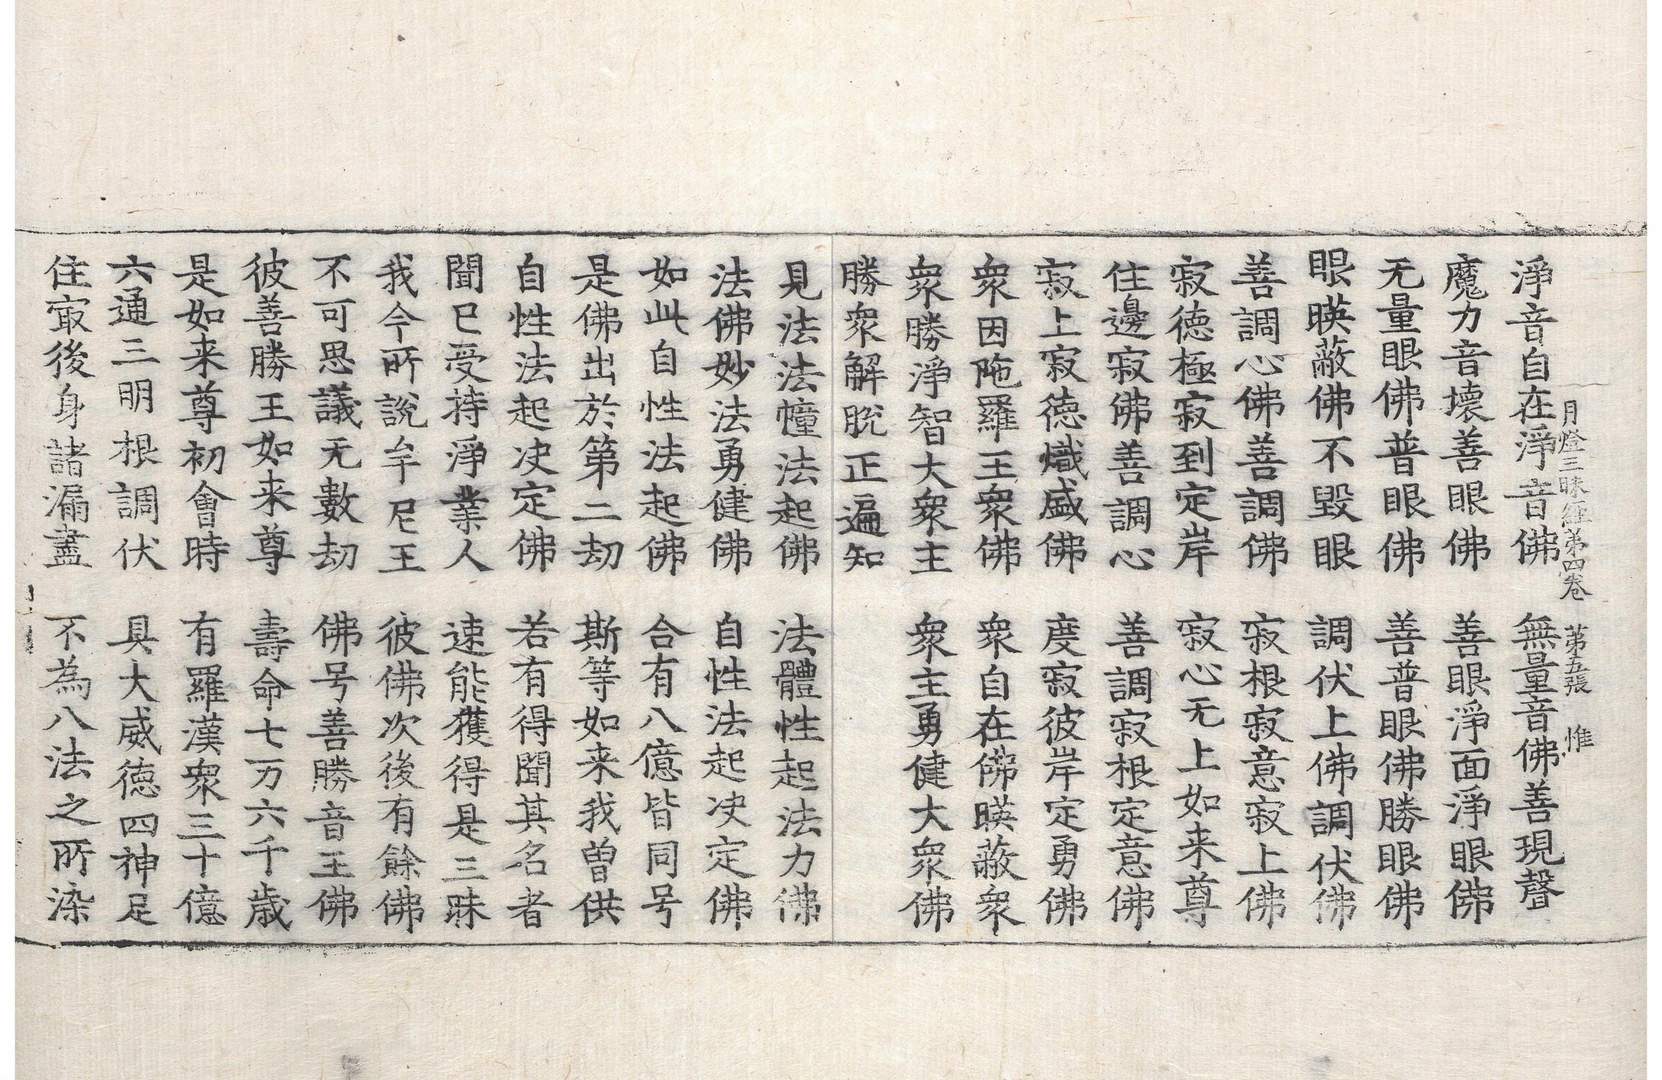 月燈三昧經第四卷　第五張　惟
淨音自在淨音佛　無量音佛善現聲
魔力音壞善眼佛　善眼淨面淨眼佛
无量眼佛普眼佛　善普眼佛勝眼佛
眼暎蔽佛不毀眼　調伏上佛調伏佛
善調心佛善調佛　寂根寂意寂上佛
寂徳極寂到定岸　寂心无上如来尊
住邊寂佛善調心　善調寂根定意佛
寂上寂徳熾盛佛　度寂彼岸定勇佛
衆因陁羅王衆佛　衆自在佛暎蔽衆
衆勝淨智大衆主　衆主勇健大衆佛
勝衆解脫正遍知
見法法幢法起佛　法體性起法力佛
法佛妙法勇健佛　自性法起决定佛
如此自性法起佛　合有八億皆同号
是佛出於第二劫　斯等如来我曽供
自性法起决定佛　若有得聞其名者
聞已受持淨業人　速能獲得是三昧
我今所說牟尼王　彼佛次後有餘佛
不可思議无數劫　佛号善勝音王佛
彼善勝王如来尊　壽命七万六千歳
是如来尊初會時　有羅漢衆三十億
六通三明根調伏　具大威徳四神足
住㝡後身諸漏盡　不為八法之所染